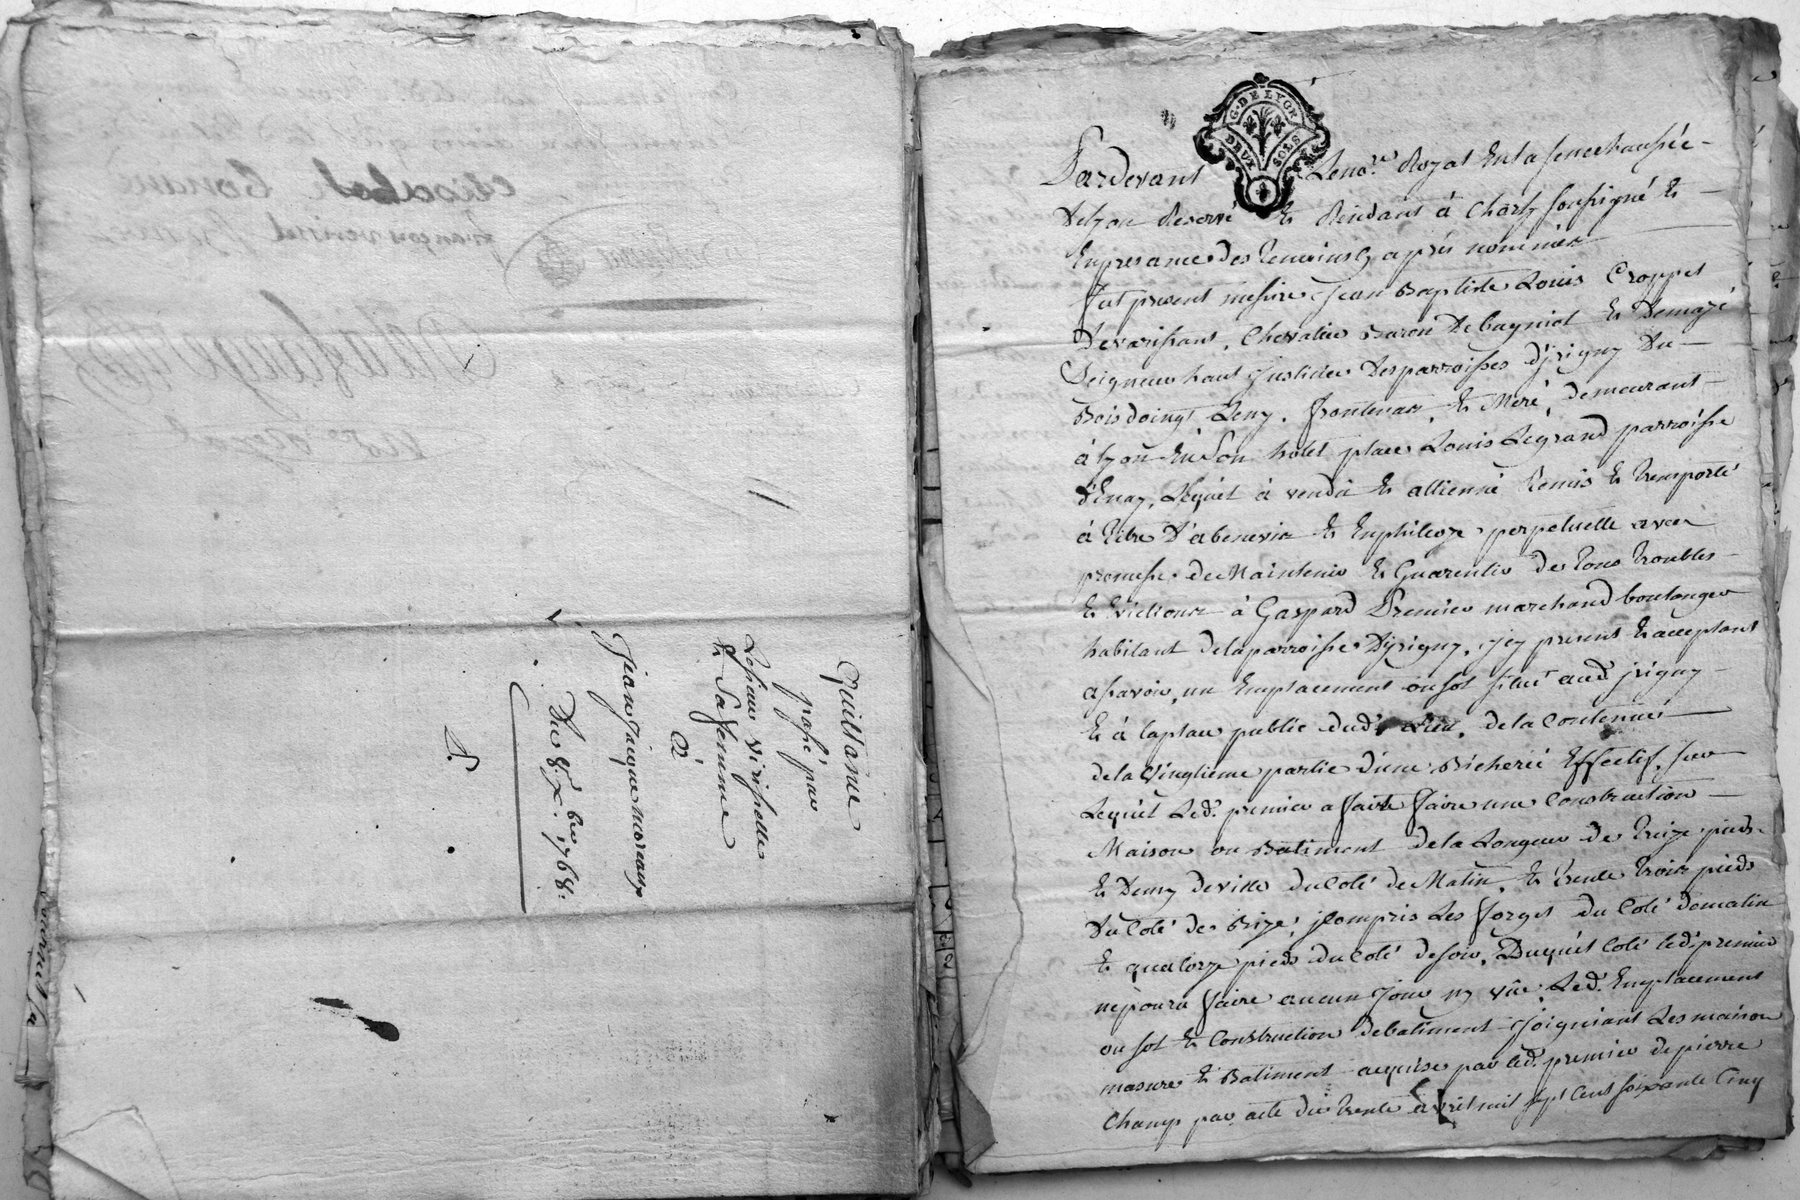 Quittance
passé par
Lesieur Virissolle
Et Sa femme
à
Jean Jacque Moreaux
Du 8.e xbre 1768.
G. DE LYON
DEUX SOLS
Pardevant Leno.re Royal Enla senechaussée
Delyon Reservé Et Residant à Charly soussigné Et
Enpresance des Temoins cy après nommés
fut present messire Jean Baptiste Louis Croppet
Devarissant, Chevalier Baron De bagniol Et Demazé
Seigneur haut Justicier Desparroisses D'jrigny Du
Bois doingt, Leny, frontenas, Et Méré, demeurant
à lyon En Son hotel place Louis Legrand parroisse
d'Enay, Lequel à vendû Et allienné Remis Et Transporté
à titre D'abenevis Et Emphiteoze perpetuelle avec
promesse de Maintenir Et Guarentir de Tous Troubles
Et Evictions à Gaspard Premier marchand boulanger
habitant delaparroisse D'jrigny, jcy present Et acceptant
assavoir un Emplacement ou sol situé aud. jrigny
Et à laplace public dud. Lieu, de la Contenue
dela Vingtieme partie D'une Bicherée Effectif, sur
Lequel Led. premier a fait faire une Construction
Maison ou Batiment dela Longueur de Treize pieds
Et Demy deville du Coté de Matin, Et Trente Trois pieds
Du Coté de Bize, jcompris Les forget du Coté dematin
Et quatorze pieds du Coté desoir, Duquel Coté led. premier
nepoura faire aucun Jour ny vûe, Led. Emplacement
ou sol Et Construction debatiment Joigniant Les maison
masure Et Batiment acquise par led. premier depierre
Champ par acte du Trente avril mil sept Cent soixante Cinq